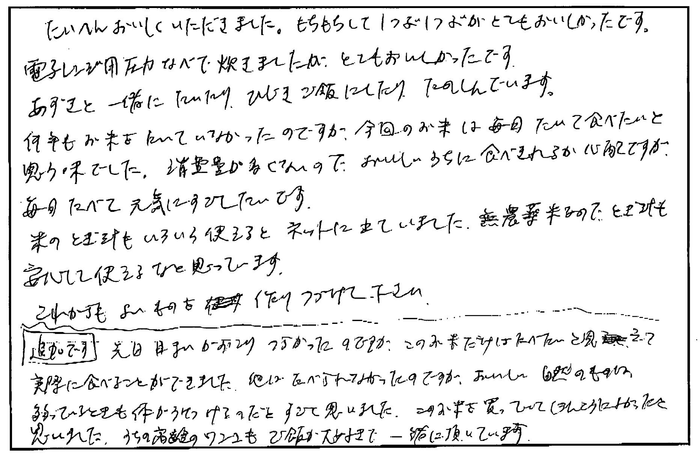 たいへんおいしくいただきました。もちもちして1つぶ1つぶがとてもおいしかったです。
電子レンジ用圧力なべで炊きましたが、とてもおいしかったです。
あずきと一緒にたいたり、ひじきご飯にしたり、たのしんでいます。
何年もお米をたいていなかったのですが、今回のお米は毎日たいて食べたいと
思う味でした。消費量が多くないので、おいしいうちに食べきれるか心配ですが、
毎日たべて元気にすごしたいです。
米のとぎ汁もいろいろ使えるとネットに出ていました。無農薬米なので、とぎ汁も
安心して使えるなと思っています。
これからもよいものを作りつづけて下さい。
追加です 先日目まいがおこりつらかったのですが、このお米だけはたべたいと思えて
実際に食べることができました。他は食べられなかったのですが、おいしい自然のものは
弱っているときも体がうけつけるのだとすごく思いました。このお米を買っていてほんとうによかったと
思いました。うちの高齢のワンコもご飯が大好きで一緒に頂いています。